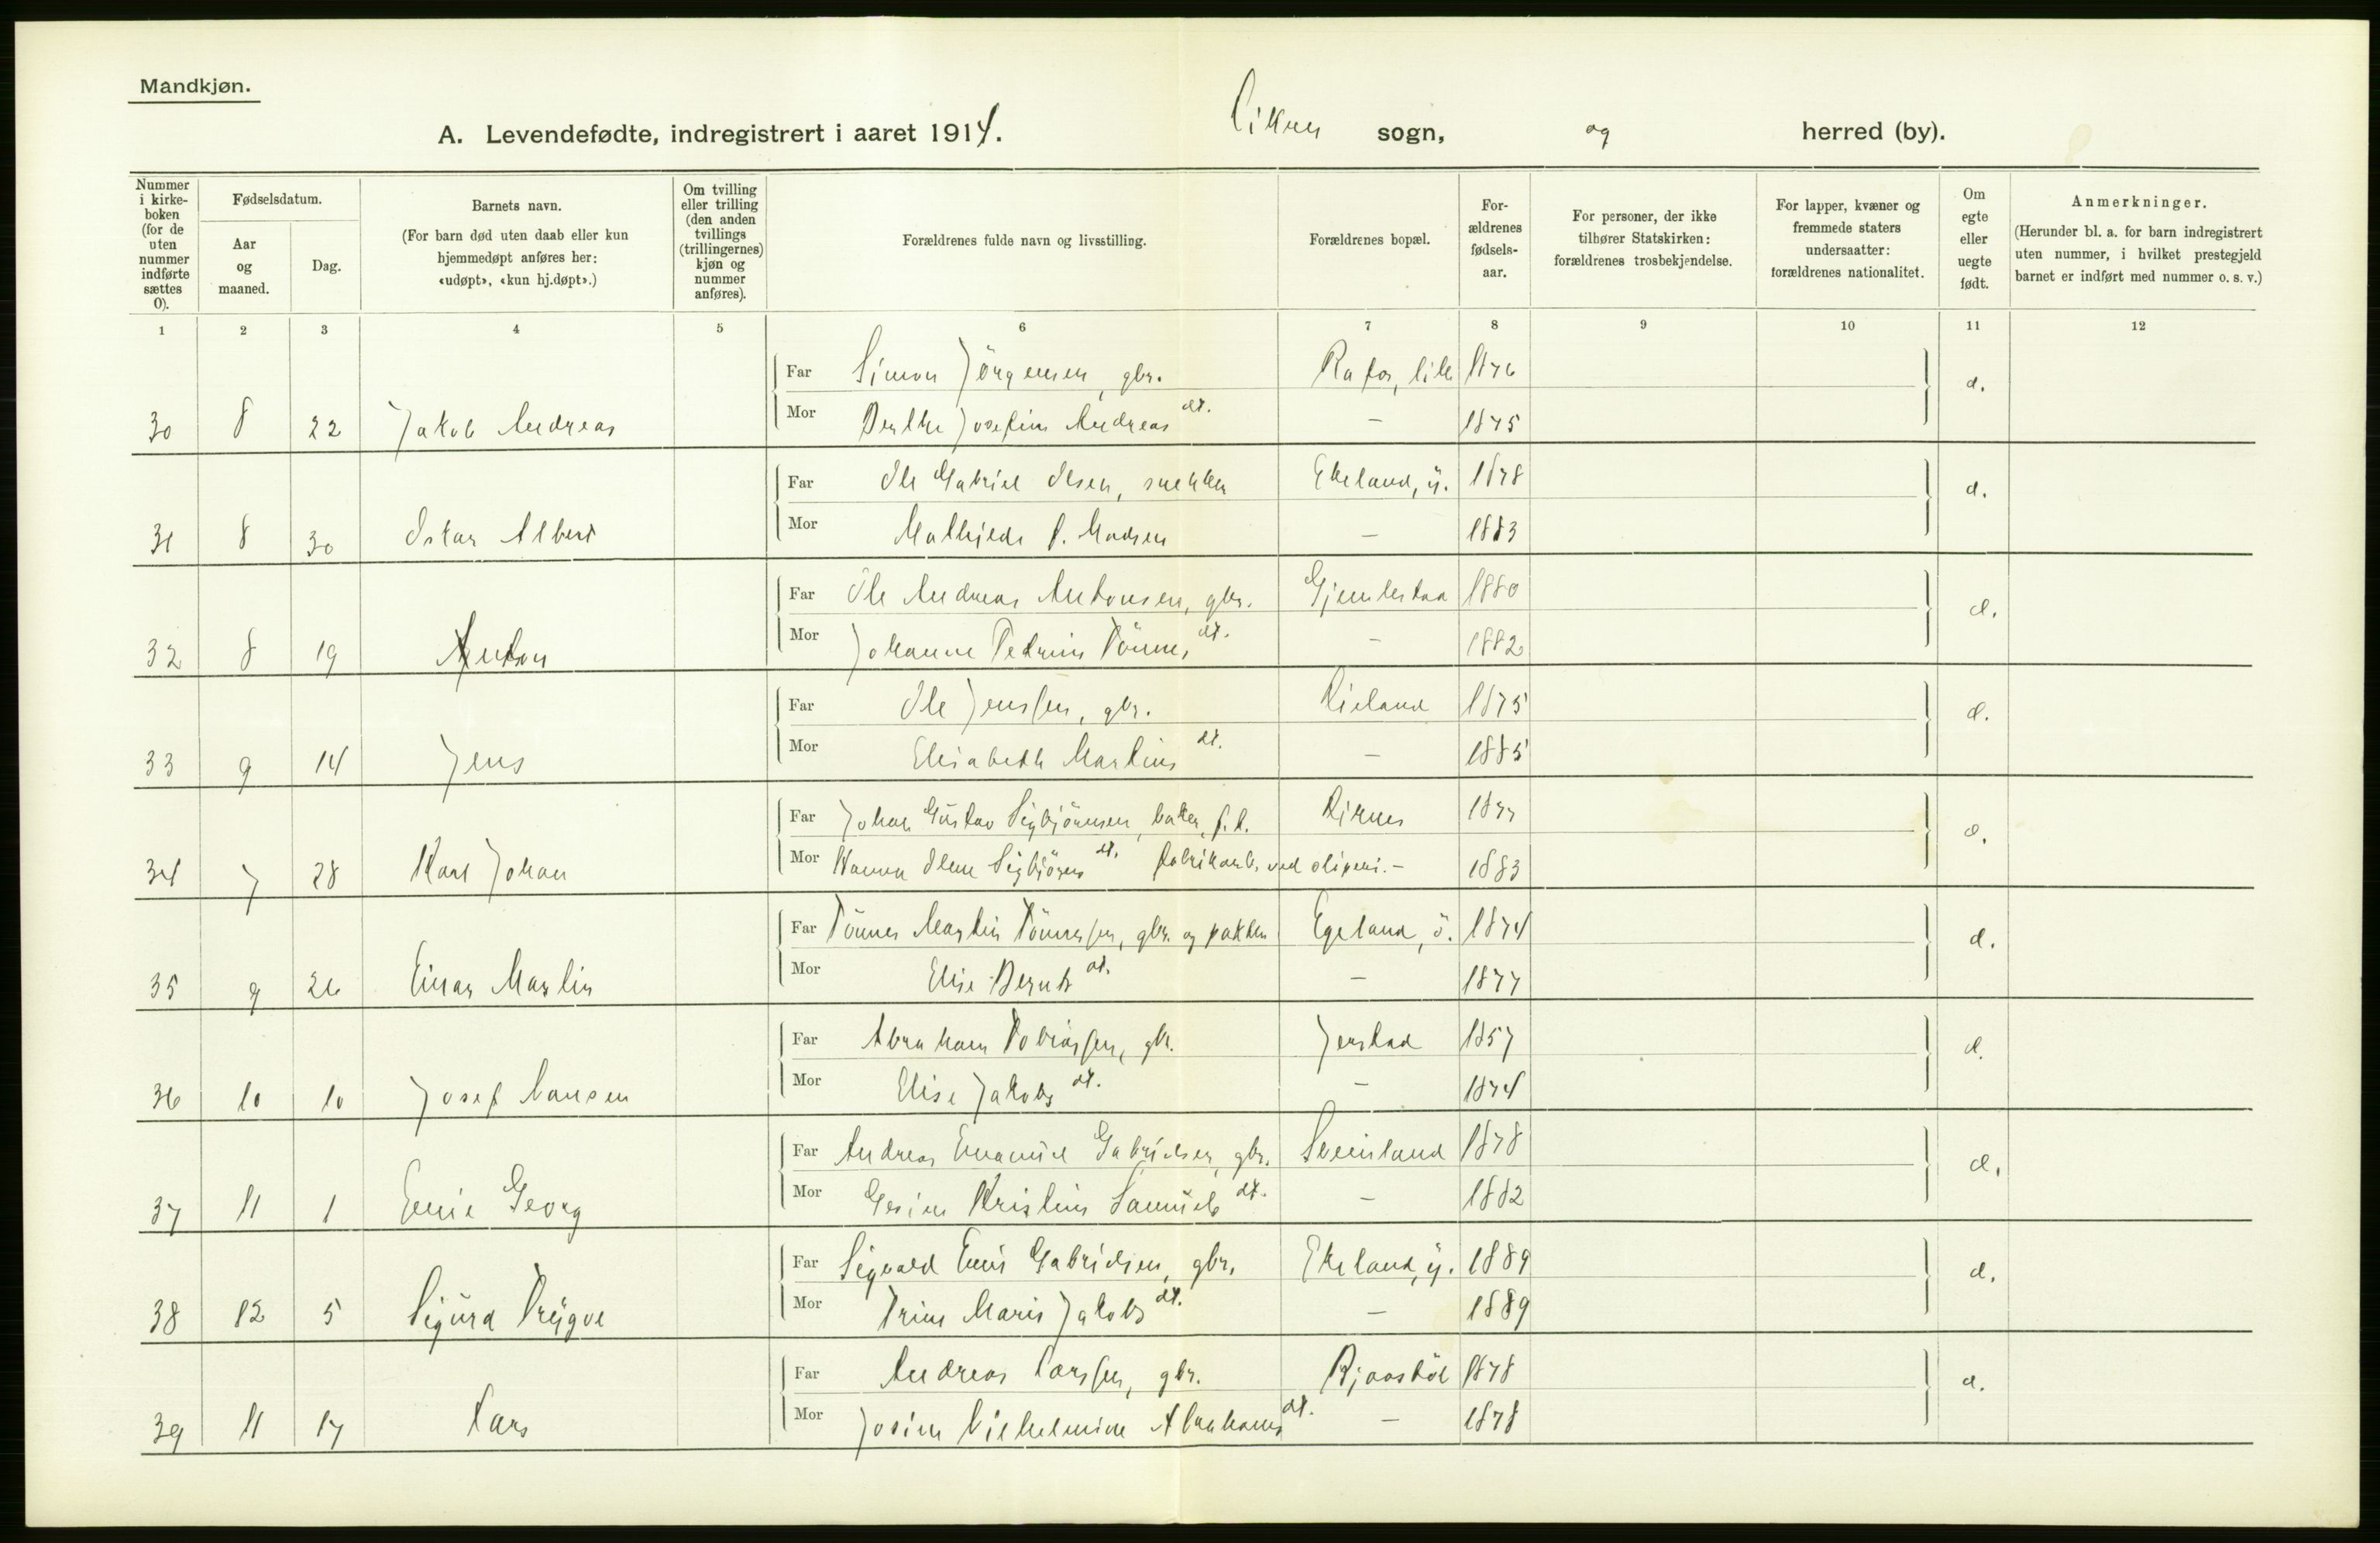 Mandkjøn.
A. Levendefødte, indregistrert i aaret 1914. sogn, og herred (by).
Nummer i kirke-boken (for de uten nummer indførte sættes 0).
Fødselsdatum.
Aar og maaned.
Dag.
Barnets navn.
(For barn død uten daab eller kun hjemmedøpt anføres her: «udøpt», «kun hj.døpt».)
Om tvilling eller trilling (den anden tvillings (trillingernes) kjøn og nummer anføres).
Forældrenes fulde navn og livsstilling.
Forældrenes bopæl.
For-ældrenes fødsels-aar.
For personer, der ikke tilhører Statskirken: forældrenes trosbekjendelse.
For lapper, kvæner og fremmede staters undersaatter: forældrenes nationalitet.
Om egte eller uegte født.
Anmerkninger.
(Herunder bl. a. for barn indregistrert uten nummer, i hvilket prestegjeld barnet er indført med nummer o. s. v.)
1 2 3 4 5 6 7 8 9 10 11 12
Far Simon Jörgensen, gbr. 1876
30 8 22 Jakob Andreas Mor Berthe Josefine Andreas dt. — 1875
Far Ole Gabriel Olsen, snekker Ekeland, y. 1878
31 8 30 Oskar Albert Mor Mathilde Madsen — 1883
Far Ole Andreas Antonsen, gbr. Gjemlestad 1880
32 8 19 Anton Mor Johanne Petrine Tönnes dt. — 1882
Far Ole Jenssen, gbr. 1875
33 9 14 Jens Mor Elisabeth Martins dt. — 1885
Far Johan Gustav Sigbjörnsen, baker, 1877
34 7 28 Karl Johan Mor Hanna Sigbjörns dt. fabrikarb. ved — 1883
Far Tönnes Martin Tönnessen, gbr. og pakker Egeland, ö. 1874
35 9 26 Einar Martin Mor Elise Bernts dt. — 1877
Far Abraham Tobiassen, gbr. Jerstad 1857
36 10 10 Josef Mor Elise Jakobs dt. — 1874
Far Andreas Emanuel Gabrielsen, gbr. Sveinland 1878
37 11 1 Georg Mor Gesine Kristine Samuels dt. — 1882
Far Sigvald Gabrielsen, gbr. Ekeland, y. 1889
38 12 5 Sigurd Trygve Mor Trine Marie Jakobs dt. — 1889
Far Andreas Larssen, gbr. 1878
39 11 17 Lars Mor Josine Vilhelmine Abrahams dt. — 1878